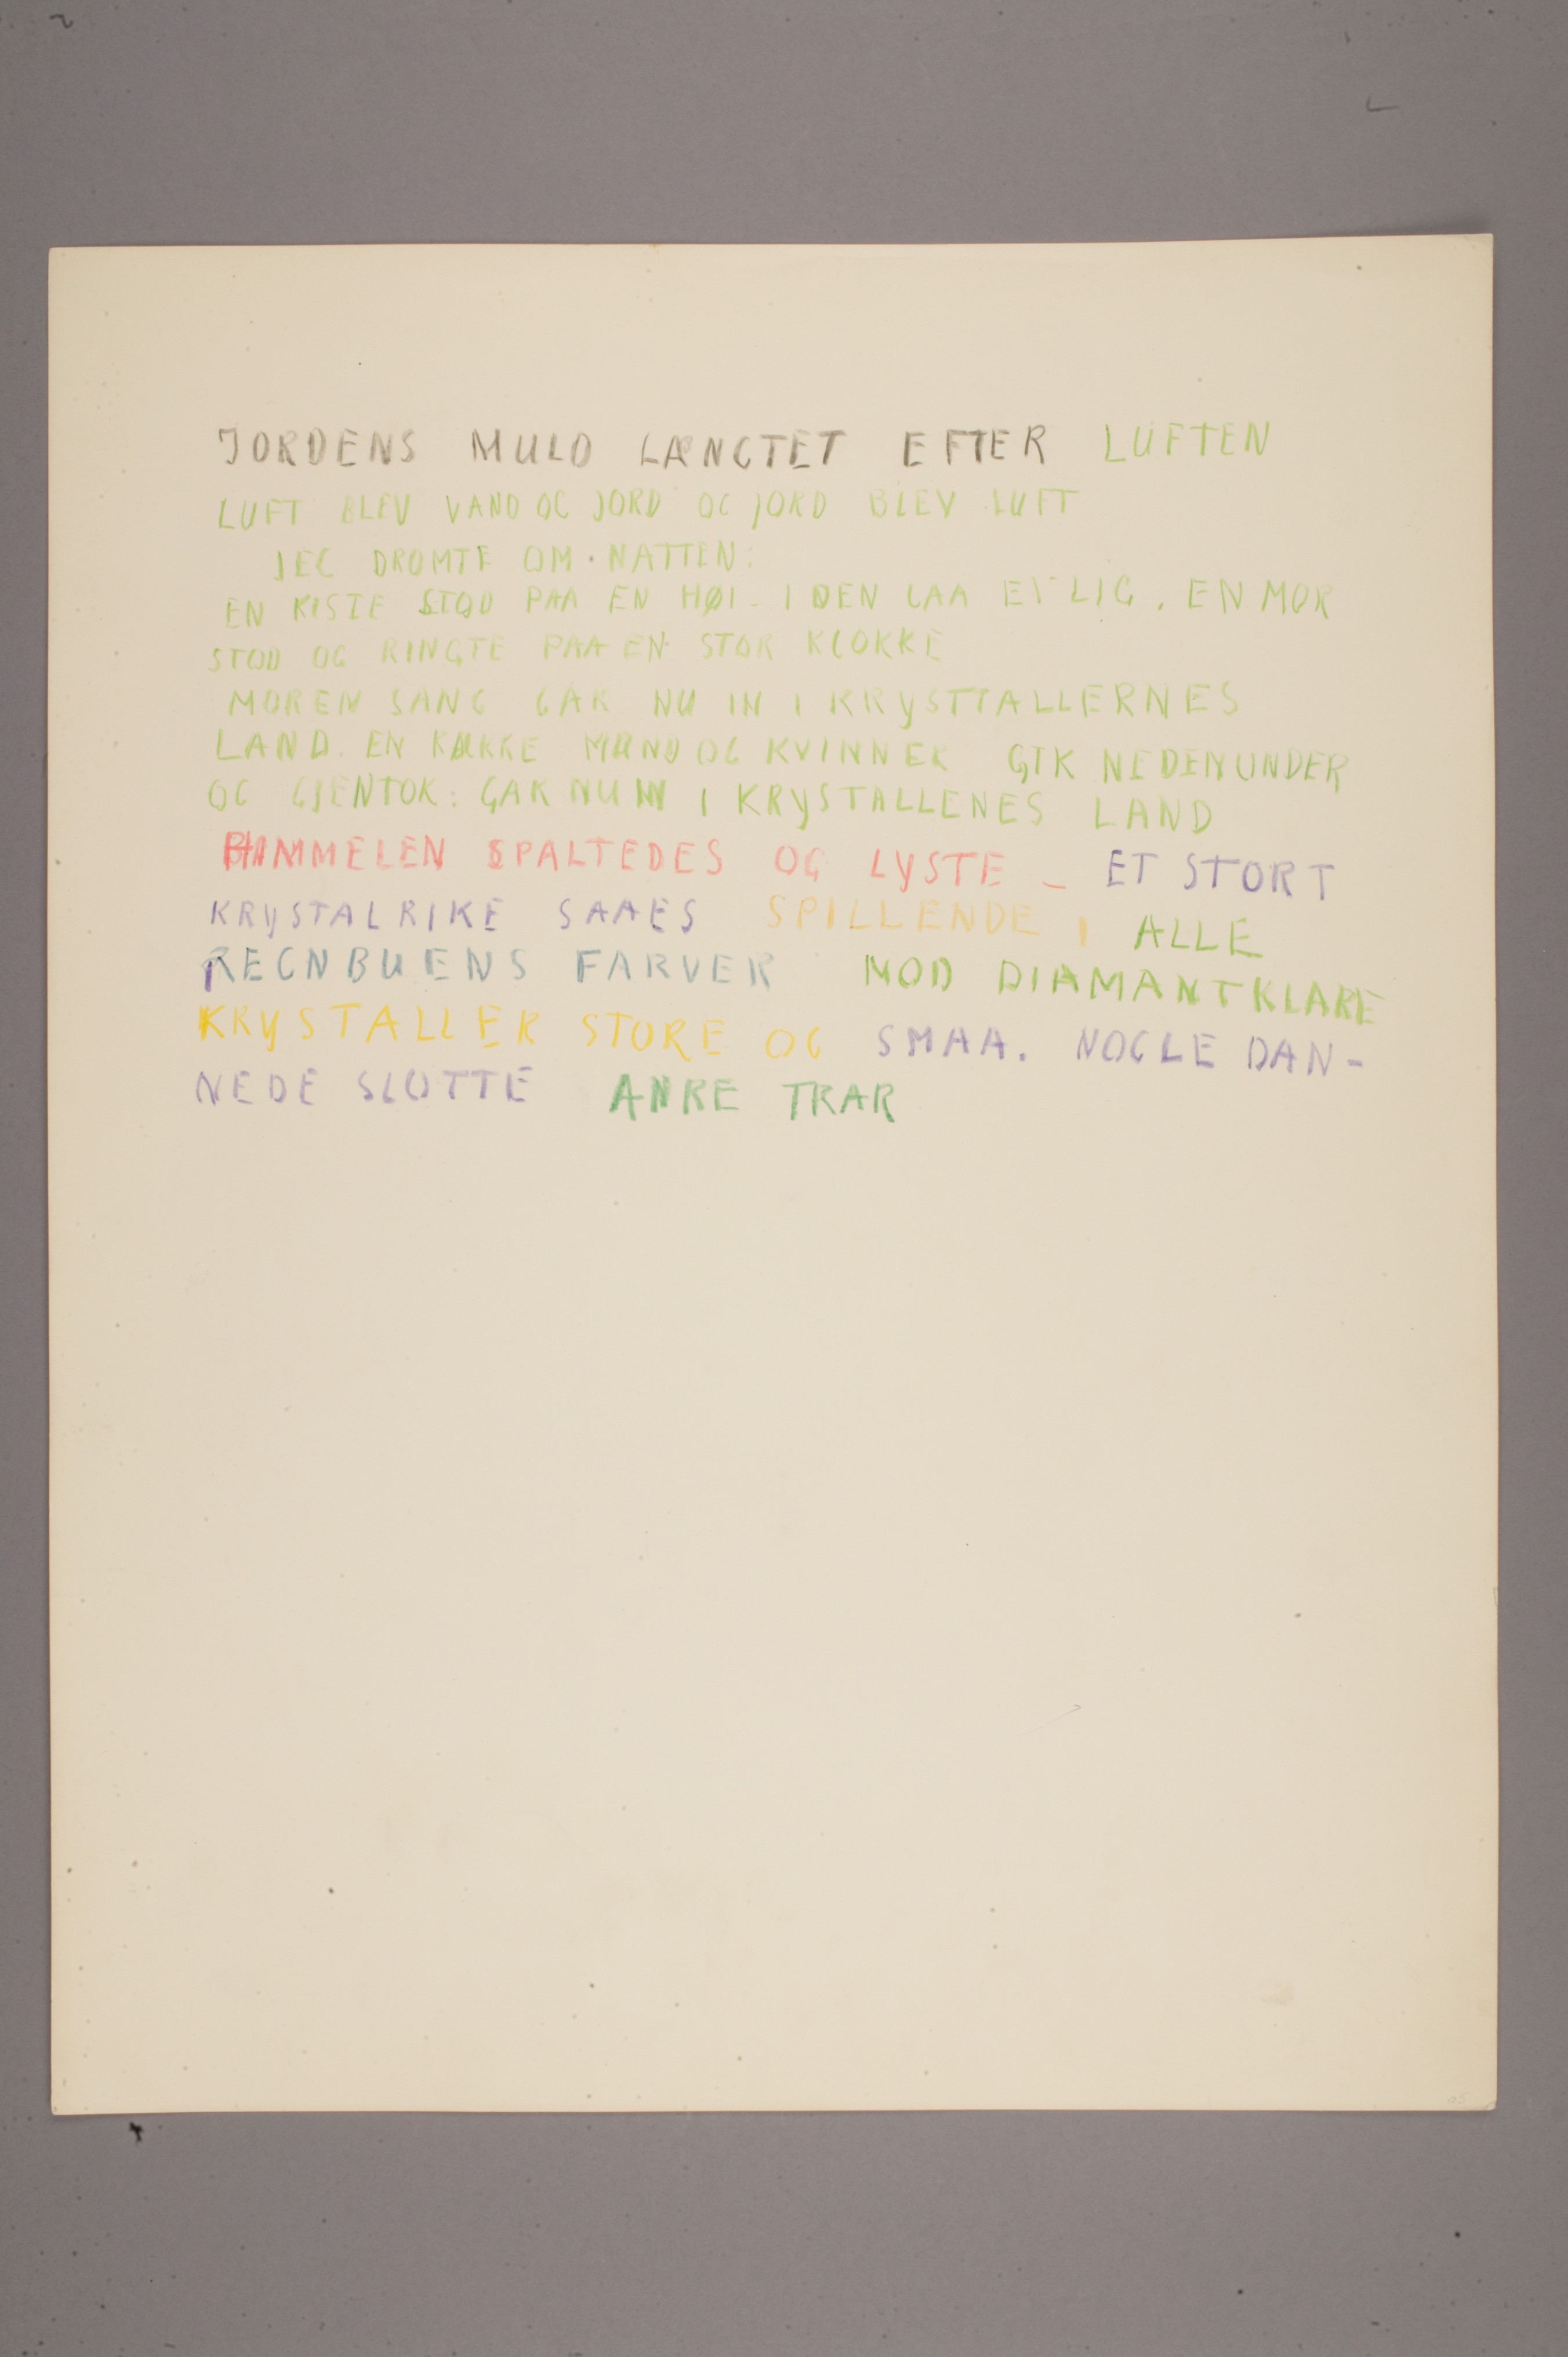 JORDENS MULD LÆNGTET EFTER LUFTEN
LUFT BLEV VAND OG JORD OG JORD BLEV LUFT
JEG DROMTE OM NATTEN:
EN KISTE STOD PAA EN HØI – I DEN LAA ET LIG. EN MOR
STOD OG RINGTE PAA EN STOR KLOKKE
MOREN SANG GAK NU IN I KRYSTTALLERNES
LAND. EN RÆKKE MÆND OG KVINNER GIK NEDENUNDER
OG GJENTOK: GAK NU IN I KRYSTALLENES LAND
HIMMELEN SPALTEDES OG LYSTE – ET STORT
KRYSTALRIKE SAAES SPILLENDE I ALLE
REGNBUENS FARVER MOD DIAMANTKLARE
KRYSTALLER STORE OG SMAA. NOGLE DAN-
NEDE SLOTTE ANRE TRAR